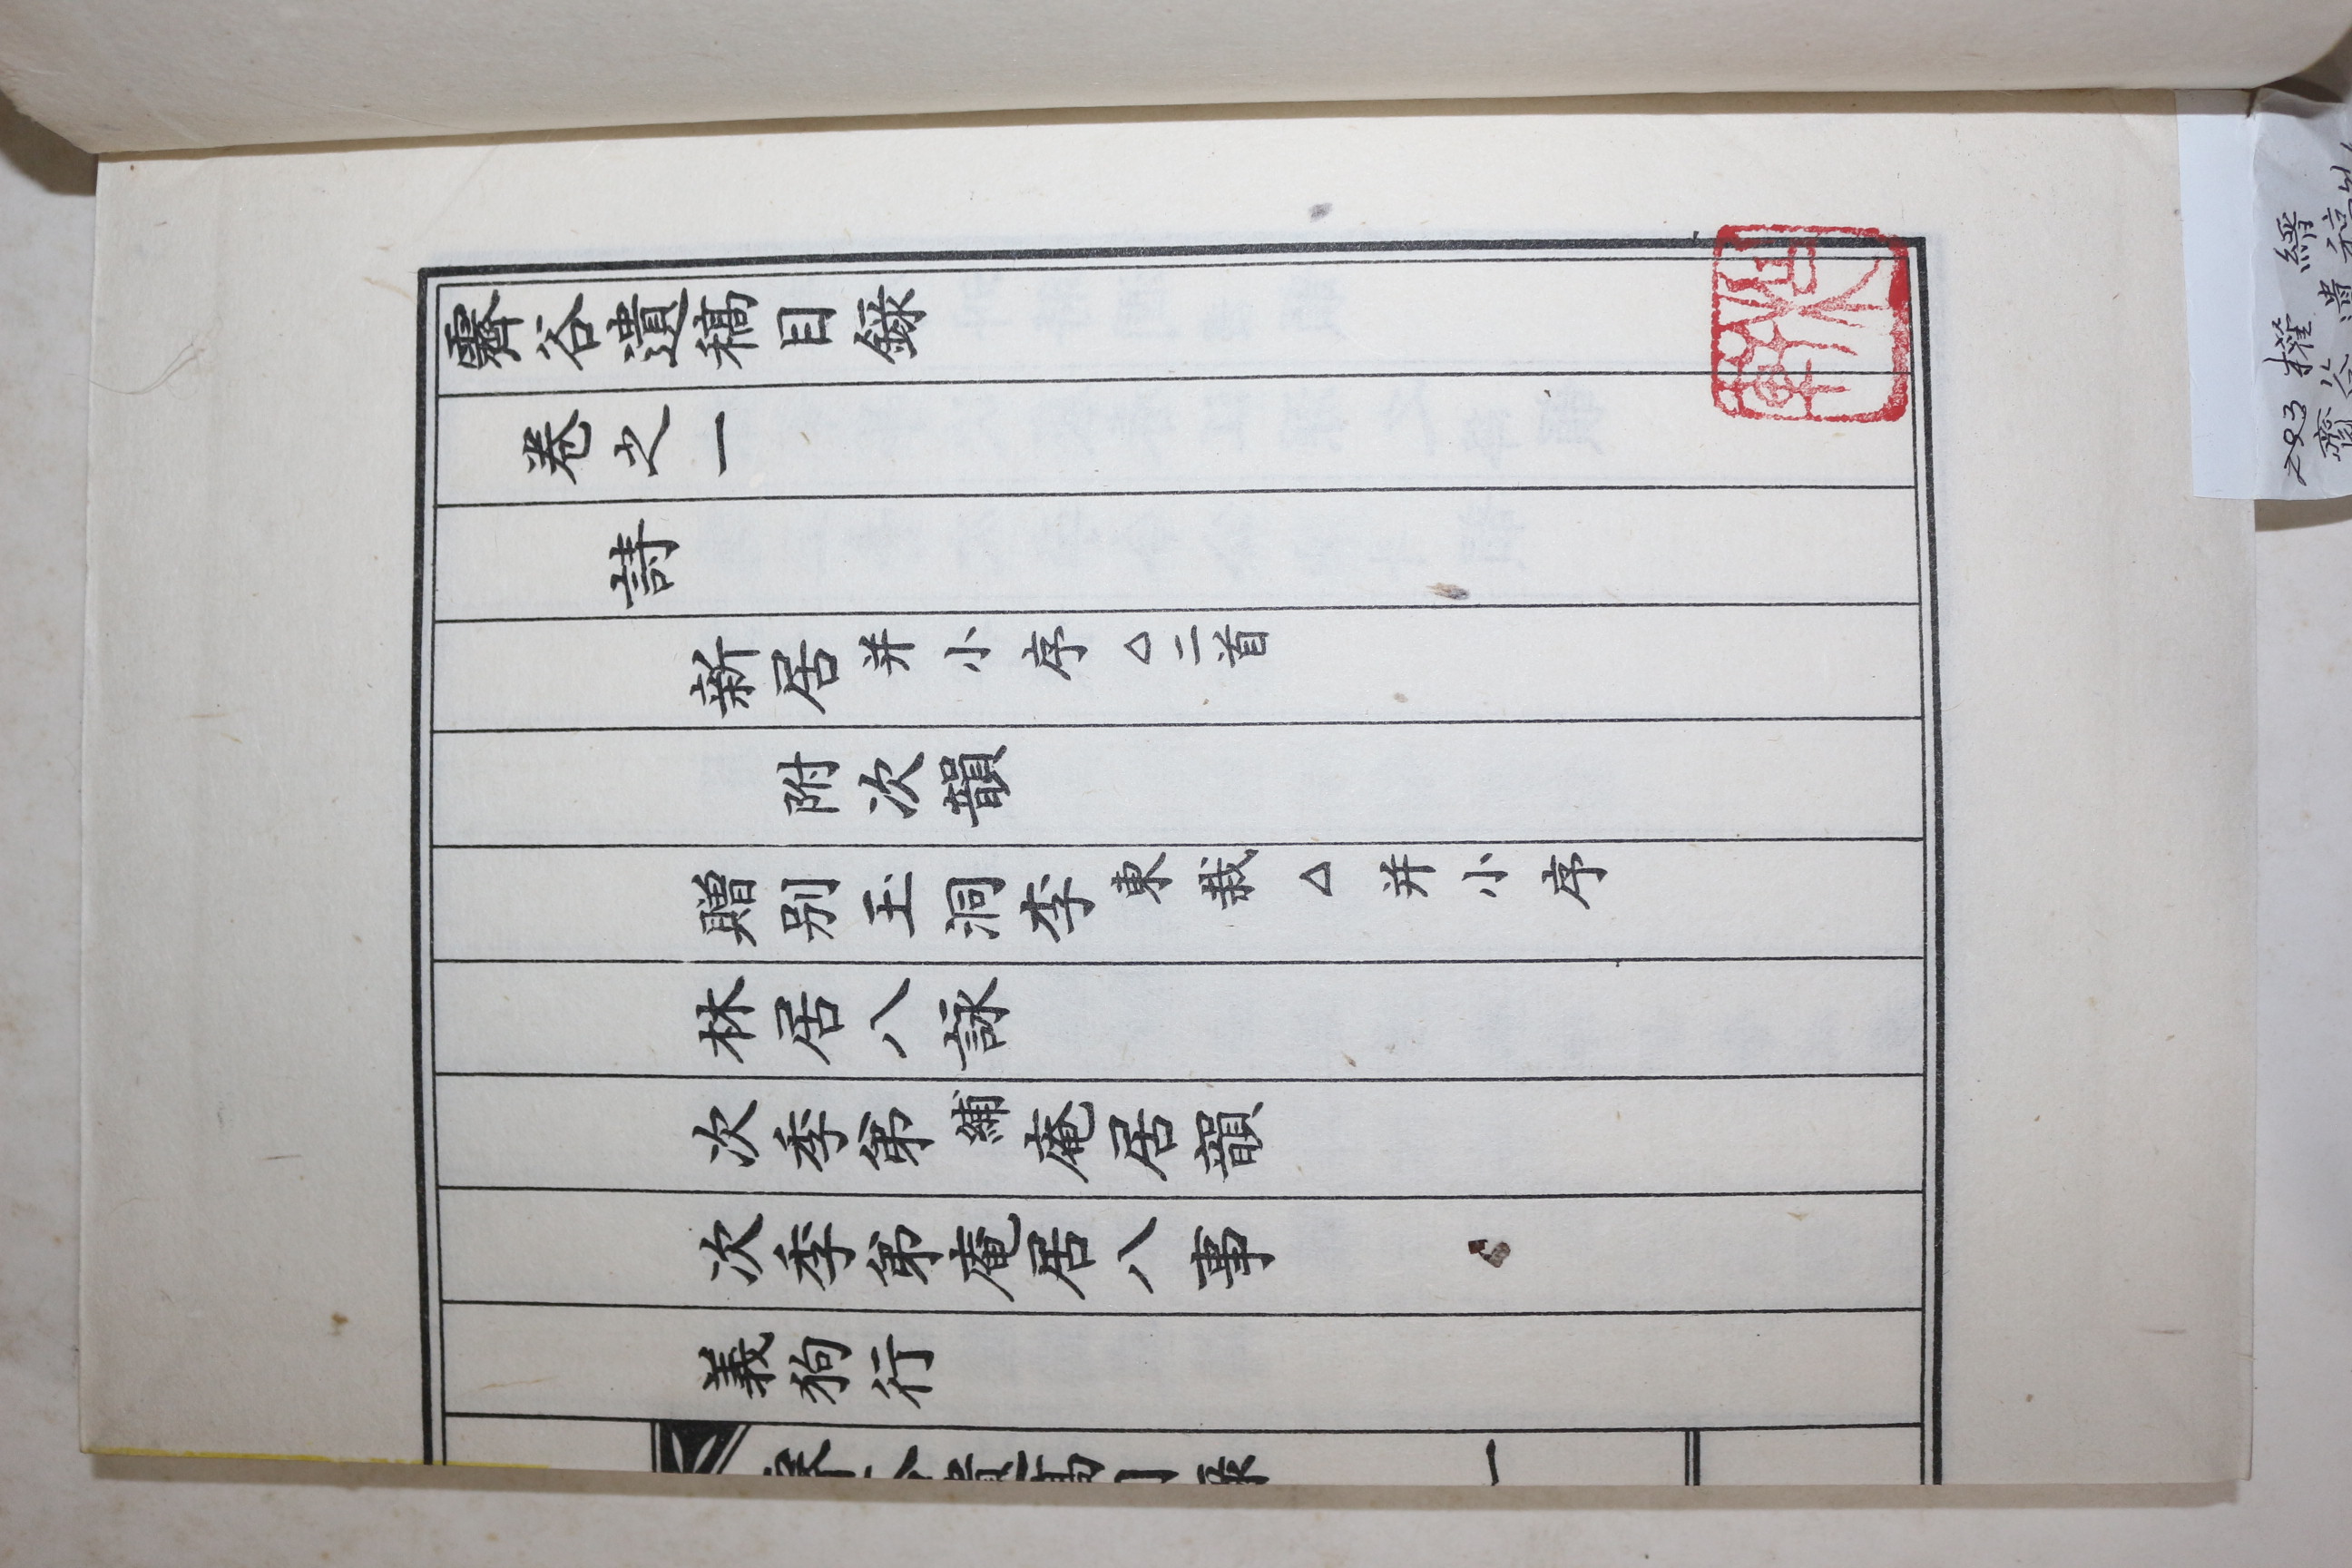 霽谷遺稿目錄
卷之一
詩
新居并小序△二首
附次韻
贈別玉洞李東栽△并小序
林居八詠
次季弟繡庵居韻
次季弟庵居八事
義狗行
一
283 權 縉